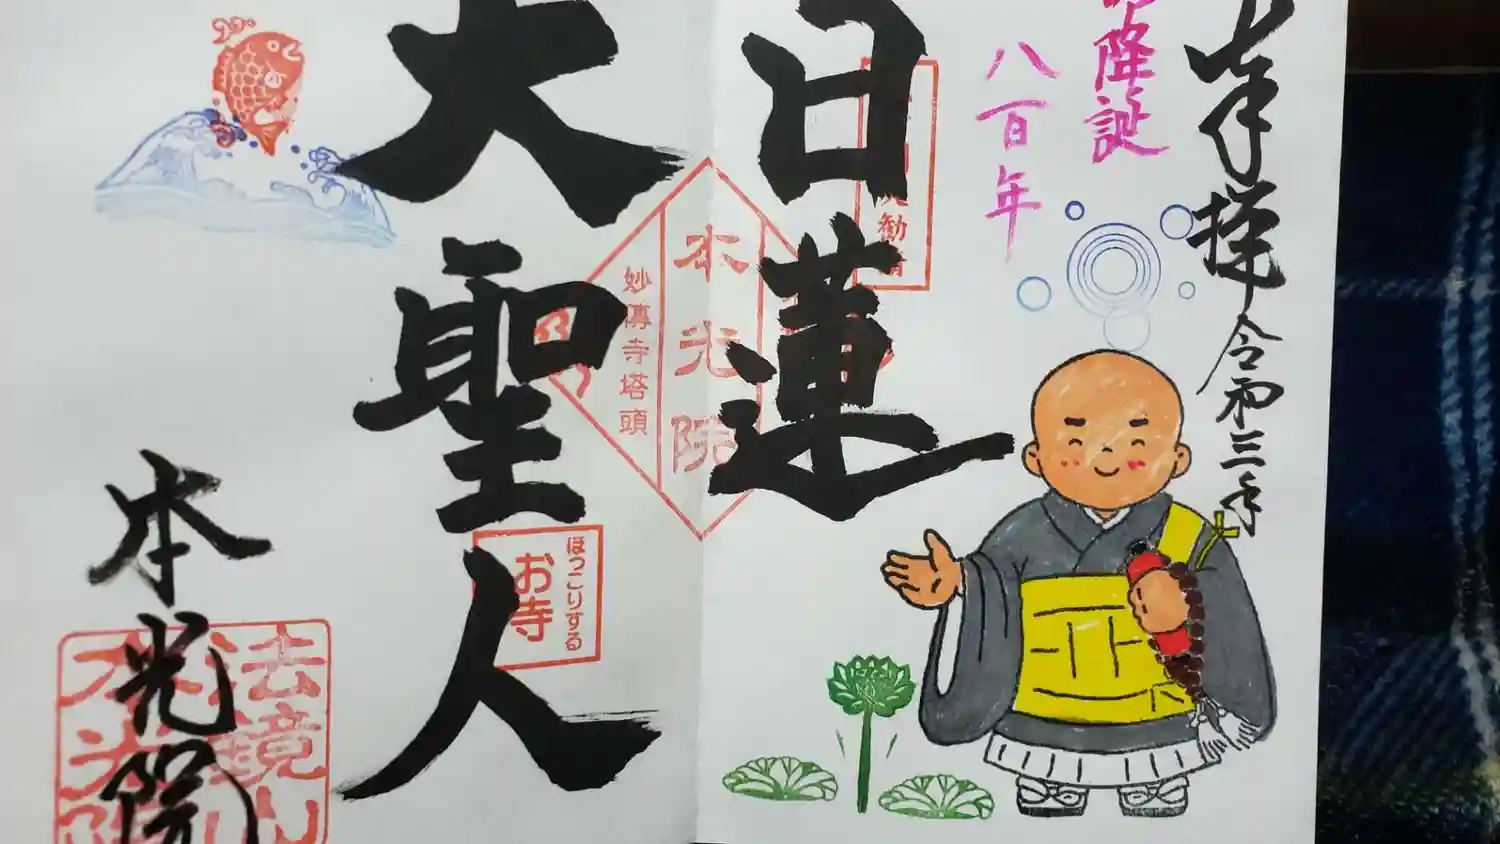 奉拝 令和三年
降誕
八百年
日蓮
大聖人
本光院
妙傳寺塔頭
ほっこりする
お寺
本光院
法鏡山
本光院